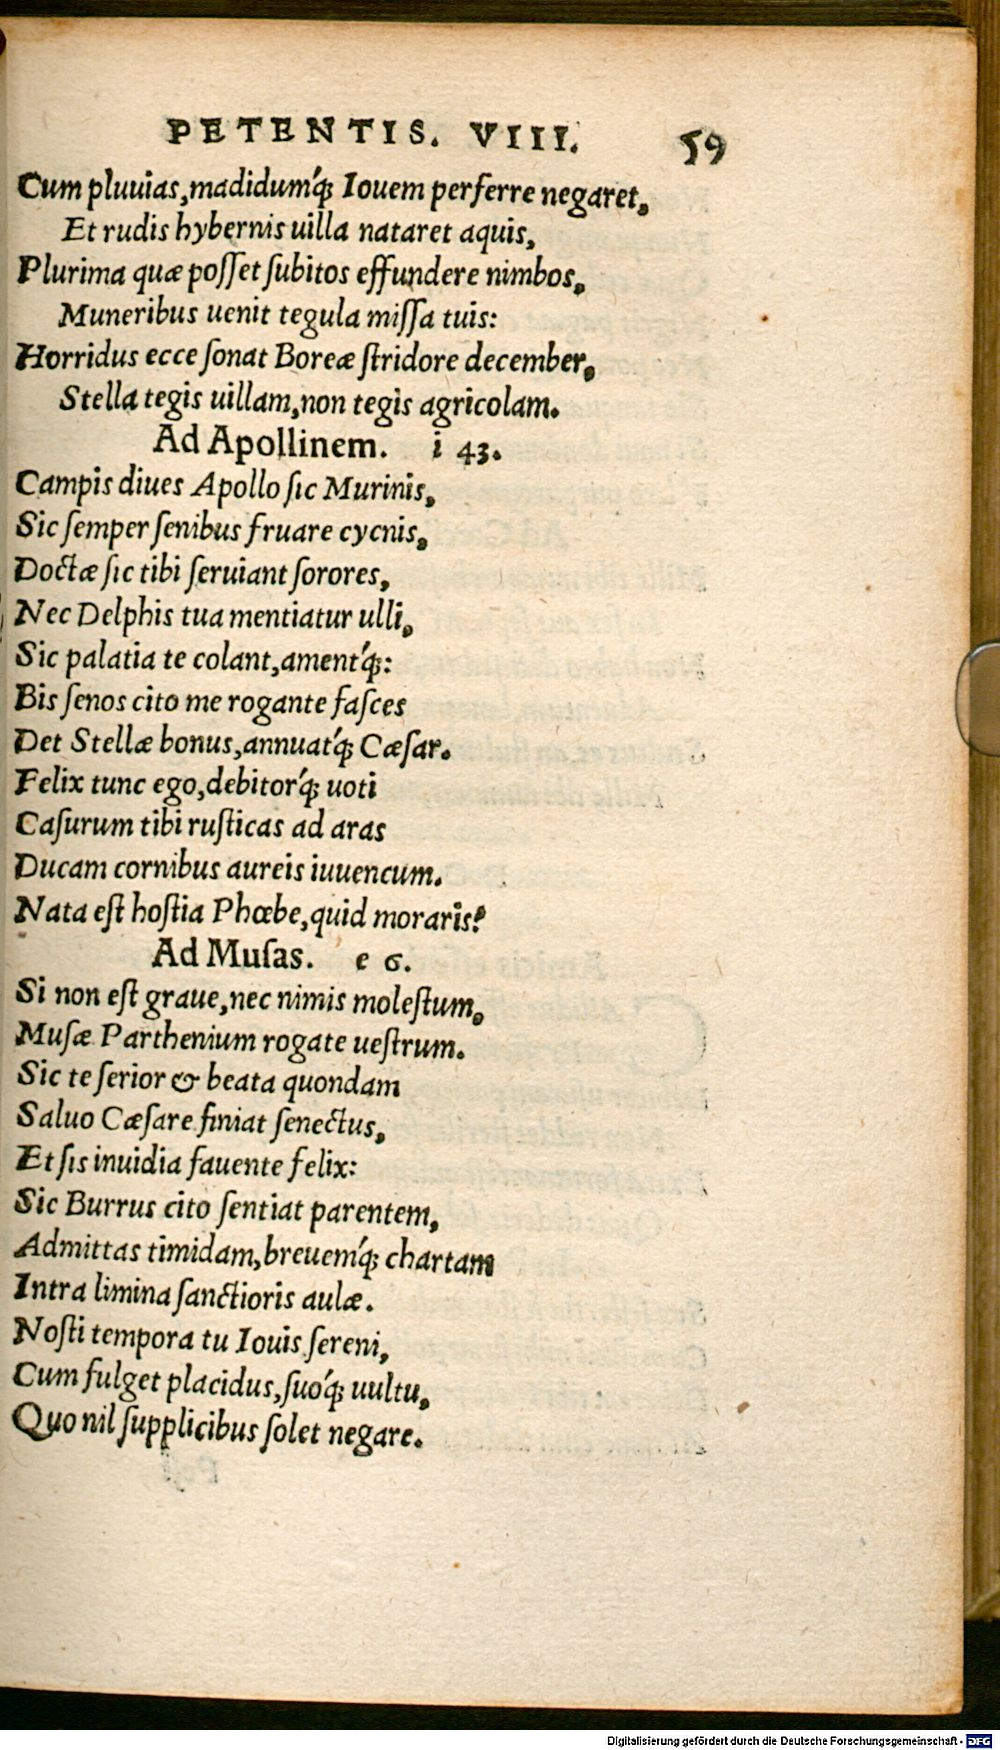 PETENTIS. VIII. 59
Cum pluuias, madidumq́; Iouem perferre negaret,
Et rudis hybernis uilla nataret aquis,
Plurima quæ posſet ſubitos effundere nimbos,
Muneribus uenit tegula misſa tuis:
Horridus ecce ſonat Boreæ ſtridore december,
Stella tegis uillam, non tegis agricolam.
Ad Apollinem. i 43.
Campis diues Apollo ſic Murinis,
Sic ſemper ſenibus fruare cycnis,
Doctæ ſic tibi ſeruiant ſorores,
Nec Delphis tua mentiatur ulli,
Sic palatia te colant, amentq́;:
Bis ſenos cito me rogante faſces
Det Stellæ bonus, annuatq́; Cæſar.
Felix tunc ego, debitorq́; uoti
Caſurum tibi ruſticas ad aras
Ducam cornibus aureis iuuencum.
Nata eſt hoſtia Phœbe, quid moraris?
Ad Muſas. e 6.
Si non eſt graue, nec nimis moleſtum,
Muſæ Parthenium rogate ueſtrum.
Sic te ſerior & beata quondam
Saluo Cæſare finiat ſenectus,
Et ſis inuidia fauente felix:
Sic Burrus cito ſentiat parentem,
Admittas timidam, breuemq́; chartam
Intra limina ſanctioris aulæ.
Noſti tempora tu Iouis ſereni,
Cum fulget placidus, ſuoq́; uultu,
Quo nil ſupplicibus ſolet negare.
Digitalisierung gefördert durch die Deutsche Forschungsgemeinschaft - DFG